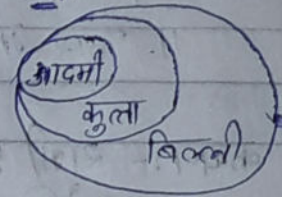 आदमी
कुत्ता
बिल्ली